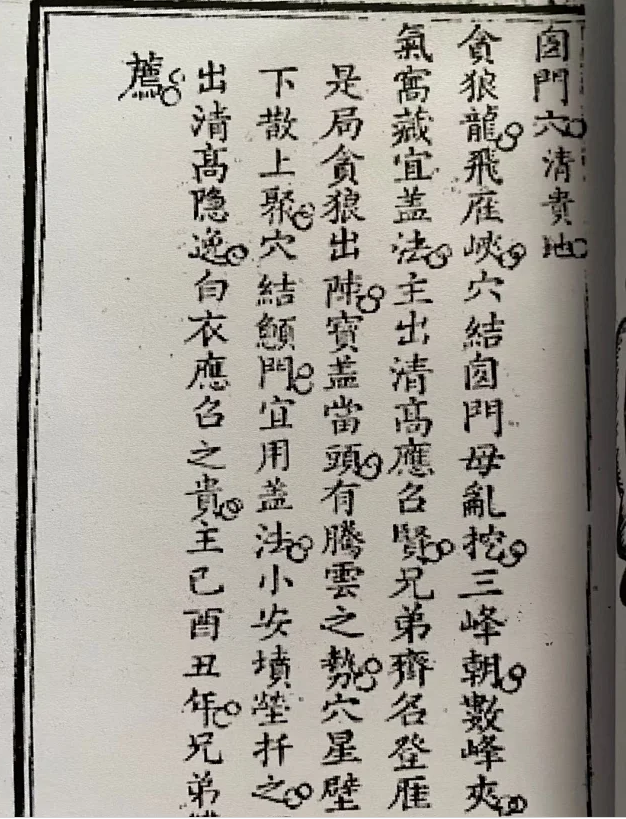 囪門穴 清貴地
貪狼龍飛雁峽穴結囪門母亂挖三峰朝數峰夾
氣窩藏宜盖法主出清高應召賢兄弟齊名登雁
是局貪狼出陣寳盖當頭有騰雲之勢穴星壁
下散上聚穴結顖門宜用盖法小安墳塋扦之
出清高隐逸白衣應召之貴主己酉丑年兄弟
薦